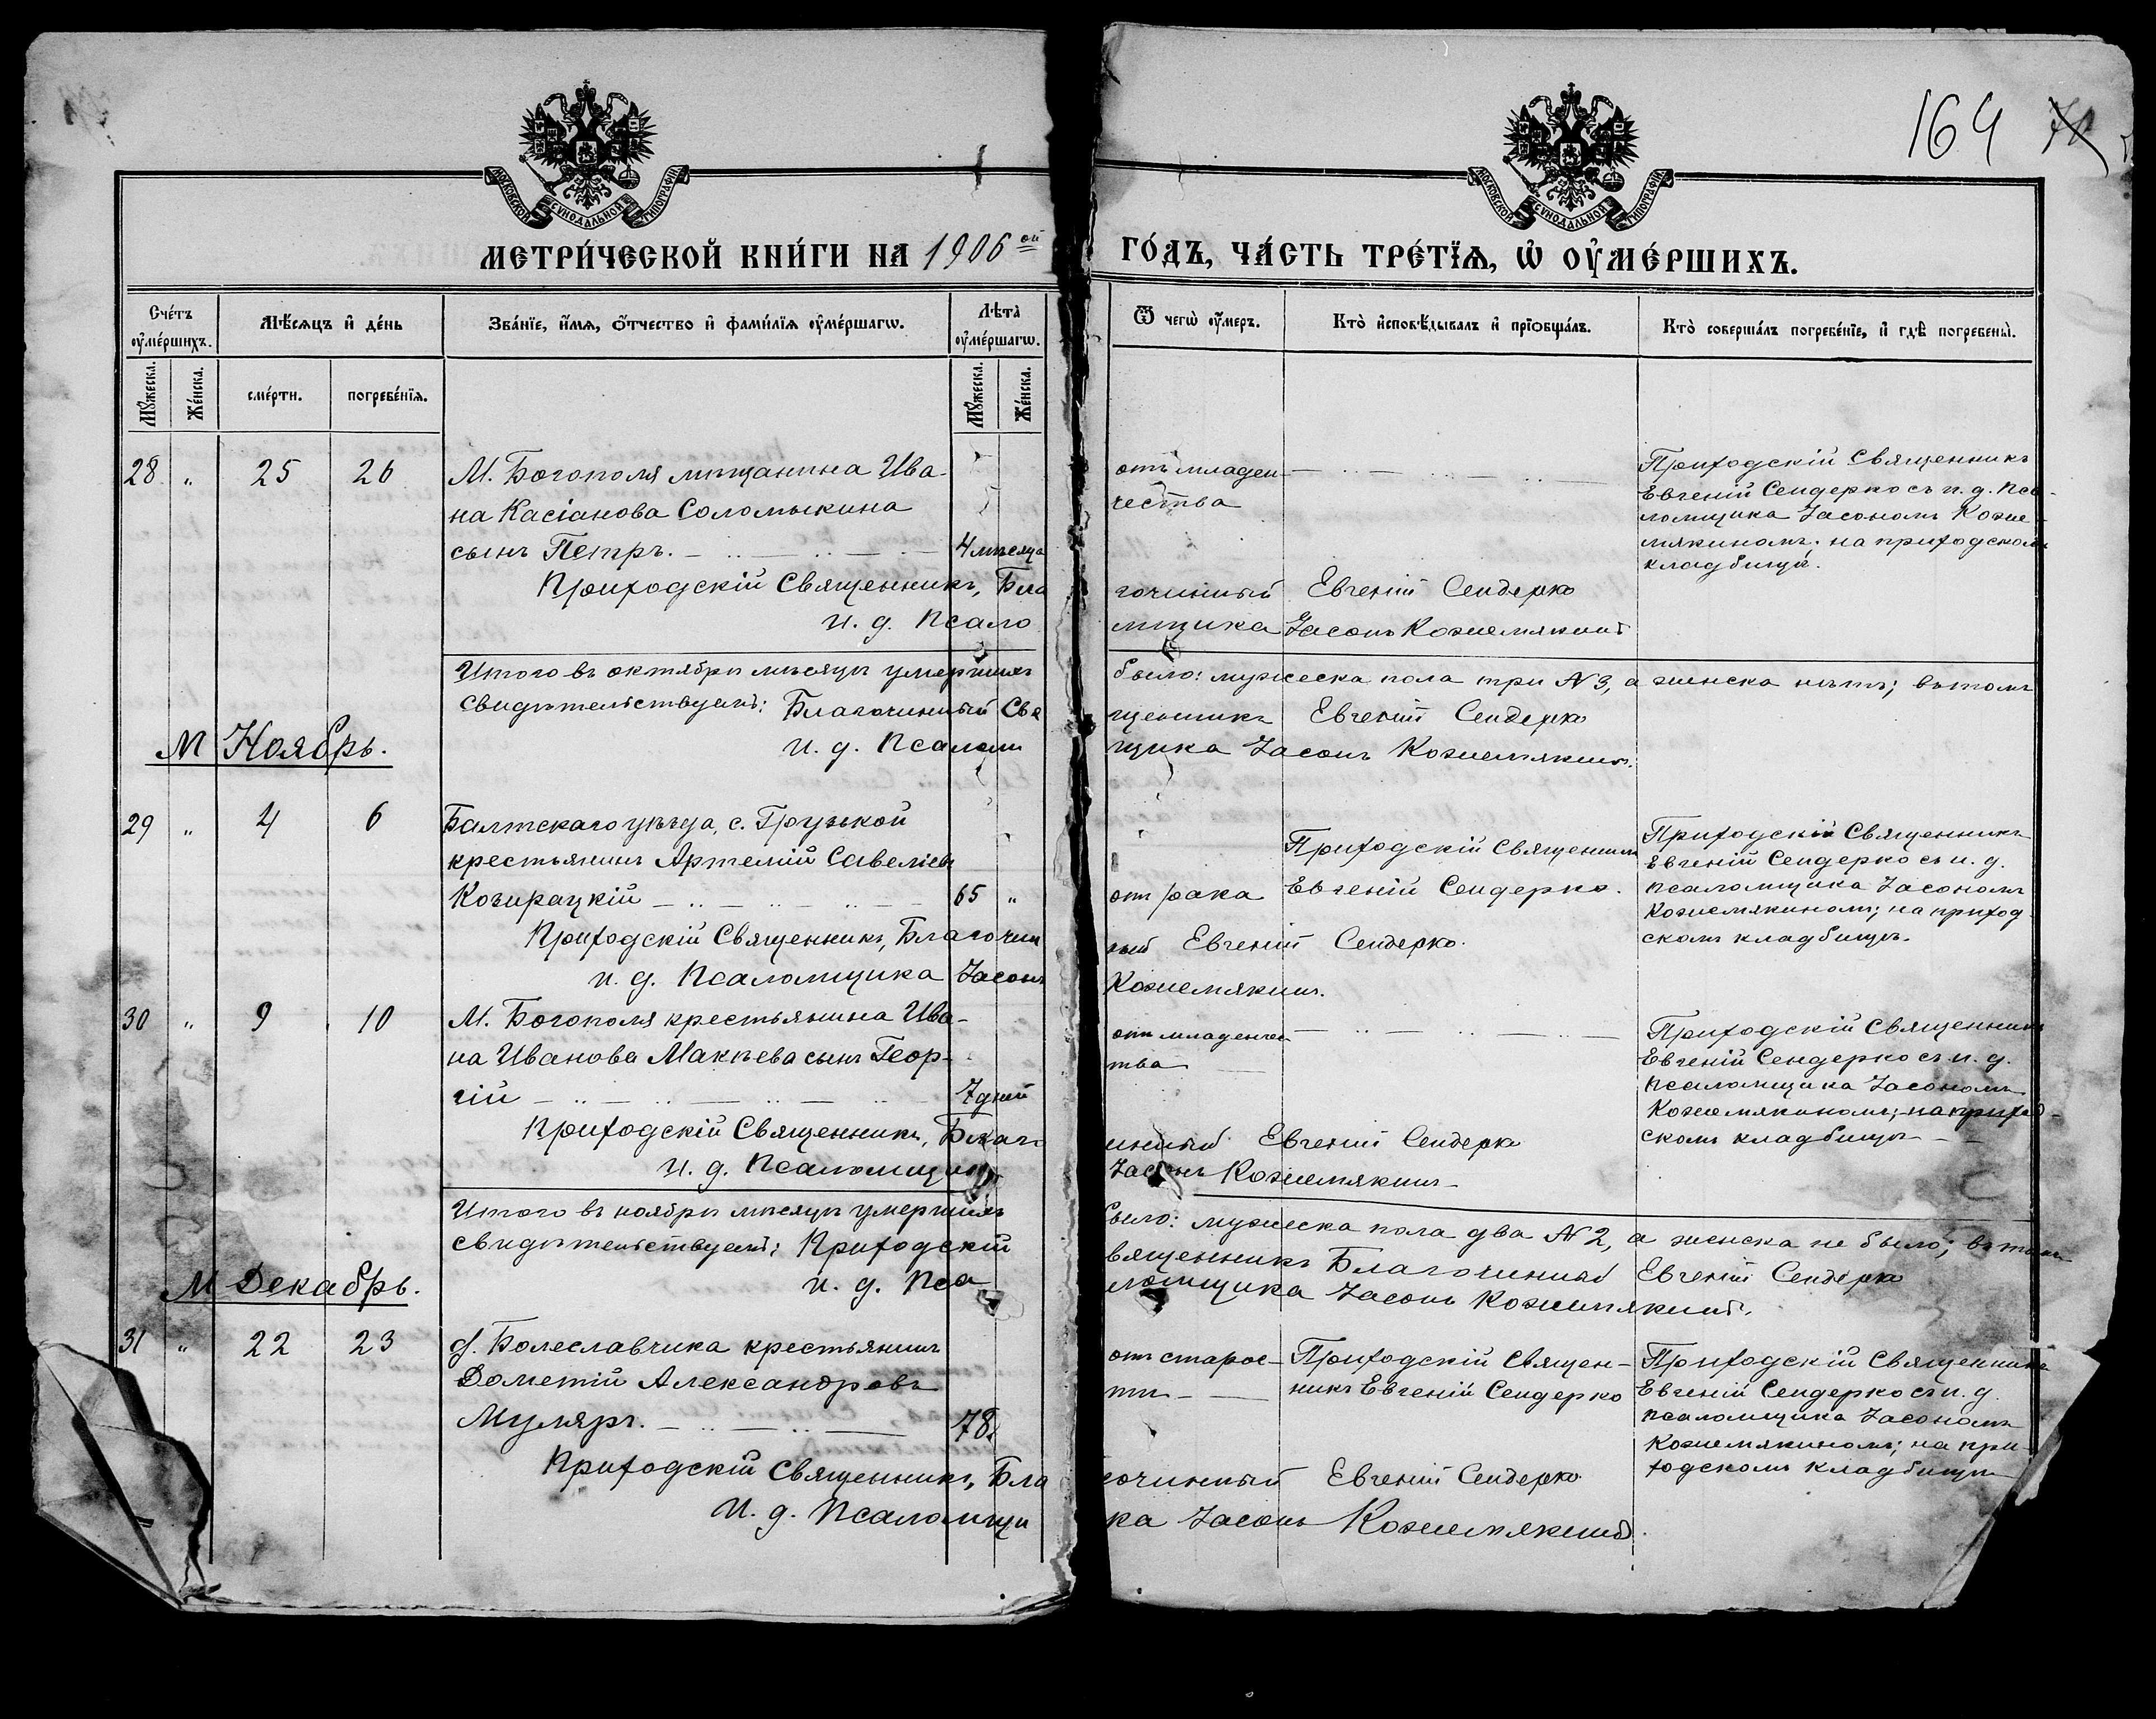 164
МОСКОВСКОЙ СѴНОДАЛЬНОЙ ТИПОГРАФІИ
МОСКОВСКОЙ СѴНОДАЛЬНОЙ ТИПОГРАФІИ
МЕТРИ́ЧЕСКОЙ КНИ́ГИ НА 1906 ой ГО́ДЪ, ЧА́СТЬ ТРЕ́ТЇѦ, Ѡ҆ ОУ҆МЕ́РШИХЪ.
Сче́тъ оу҆ме́ршихъ.
Мѣ́сѧцъ и҆ де́нь
Зва́нїе, и҆́мѧ, ѻ҆́тчество и҆ фами́лїѧ оу҆ме́ршагѡ.
Лѣта̀ оу҆ме́ршагѡ.
Ѿ чегѡ̀ оу҆́меръ.
Кто̀ и҆сповѣ́дывалъ и҆ прїѡбща́лъ.
Кто̀ соверша́лъ погребе́нїе, и҆ гдѣ̀ погребены̀.
Мꙋ́жеска.
Же́нска.
сме́рти.
погребе́нїѧ.
Мꙋ́жеска.
Же́нска.
28 " 25 26
М. Богополя мѣщанина Ива-
на Касіанова Соломыкина
сынъ Петръ. 4 мѣсяца
отъ младен-
чества
Приходскій Священникъ
Евгеній Сендерко съ и. д. Пса-
ломщика Іасономъ Коже-
мякинымъ; на приходскомъ
кладбищѣ.
Приходскій Священникъ, Благочинный Евгеній Сендерко
И. д. Псаломщика Іасонъ Кожемякинъ
Итого въ октябрѣ мѣсяцѣ умершихъ было: мужеска пола три №3, а женска нѣтъ; въ томъ
свидѣтельствуемъ: Благочинный Священникъ Евгеній Сендерко
И. д. Псаломщика Іасонъ Кожемякинъ.
М Ноябрь.
29 " 4 6
Балтскаго уѣзда, с. Грузькой
крестьянинъ Артемій Савеліевъ
65 "
отъ рака
Приходскій Священникъ
Евгеній Сендерко.
Приходскій Священникъ
Евгеній Сендерко съ и. д.
псаломщика Іасономъ
Кожемякиномъ; на приход-
скомъ кладбищѣ.
Приходскій Священникъ, Благочинный Евгеній Сендерко.
и. д. Псаломщика Іасонъ Кожемякинъ.
30 " 9 10
М. Богополя крестьянина Ива-
на Иванова Макѣева сынъ Геор-
гій 7 дней
отъ младенчес-
тва
Приходскій Священникъ
Евгеній Сендерко съ и. д.
Псаломщика Іасономъ
Кожемякиномъ; на приход-
скомъ кладбищѣ
Приходскій Священникъ, Благочинный Евгеній Сендерко
И. д. Псаломщика Іасонъ Кожемякинъ
Итого въ ноябрѣ мѣсяцѣ умершихъ было: мужеска пола два №2, а женска не было; въ томъ
свидѣтельствуемъ: Приходскій Священникъ Благочинный Евгеній Сендерко
и. д. Псаломщика Іасонъ Кожемякинъ.
М Декабрь.
31 " 22 23
д. Болеславчика крестьянинъ
Дометій Александровъ
Муляръ. 78.
отъ старос-
ти
Приходскій Священ-
никъ Евгеній Сендерко
Приходскій Священникъ
Евгеній Сендерко съ и. д.
псаломщика Іасономъ
Кожемякиномъ; на при-
ходскомъ кладбищѣ
Приходскій Священникъ, Благочинный Евгеній Сендерко
И. д. Псаломщика Іасонъ Кожемякинъ.